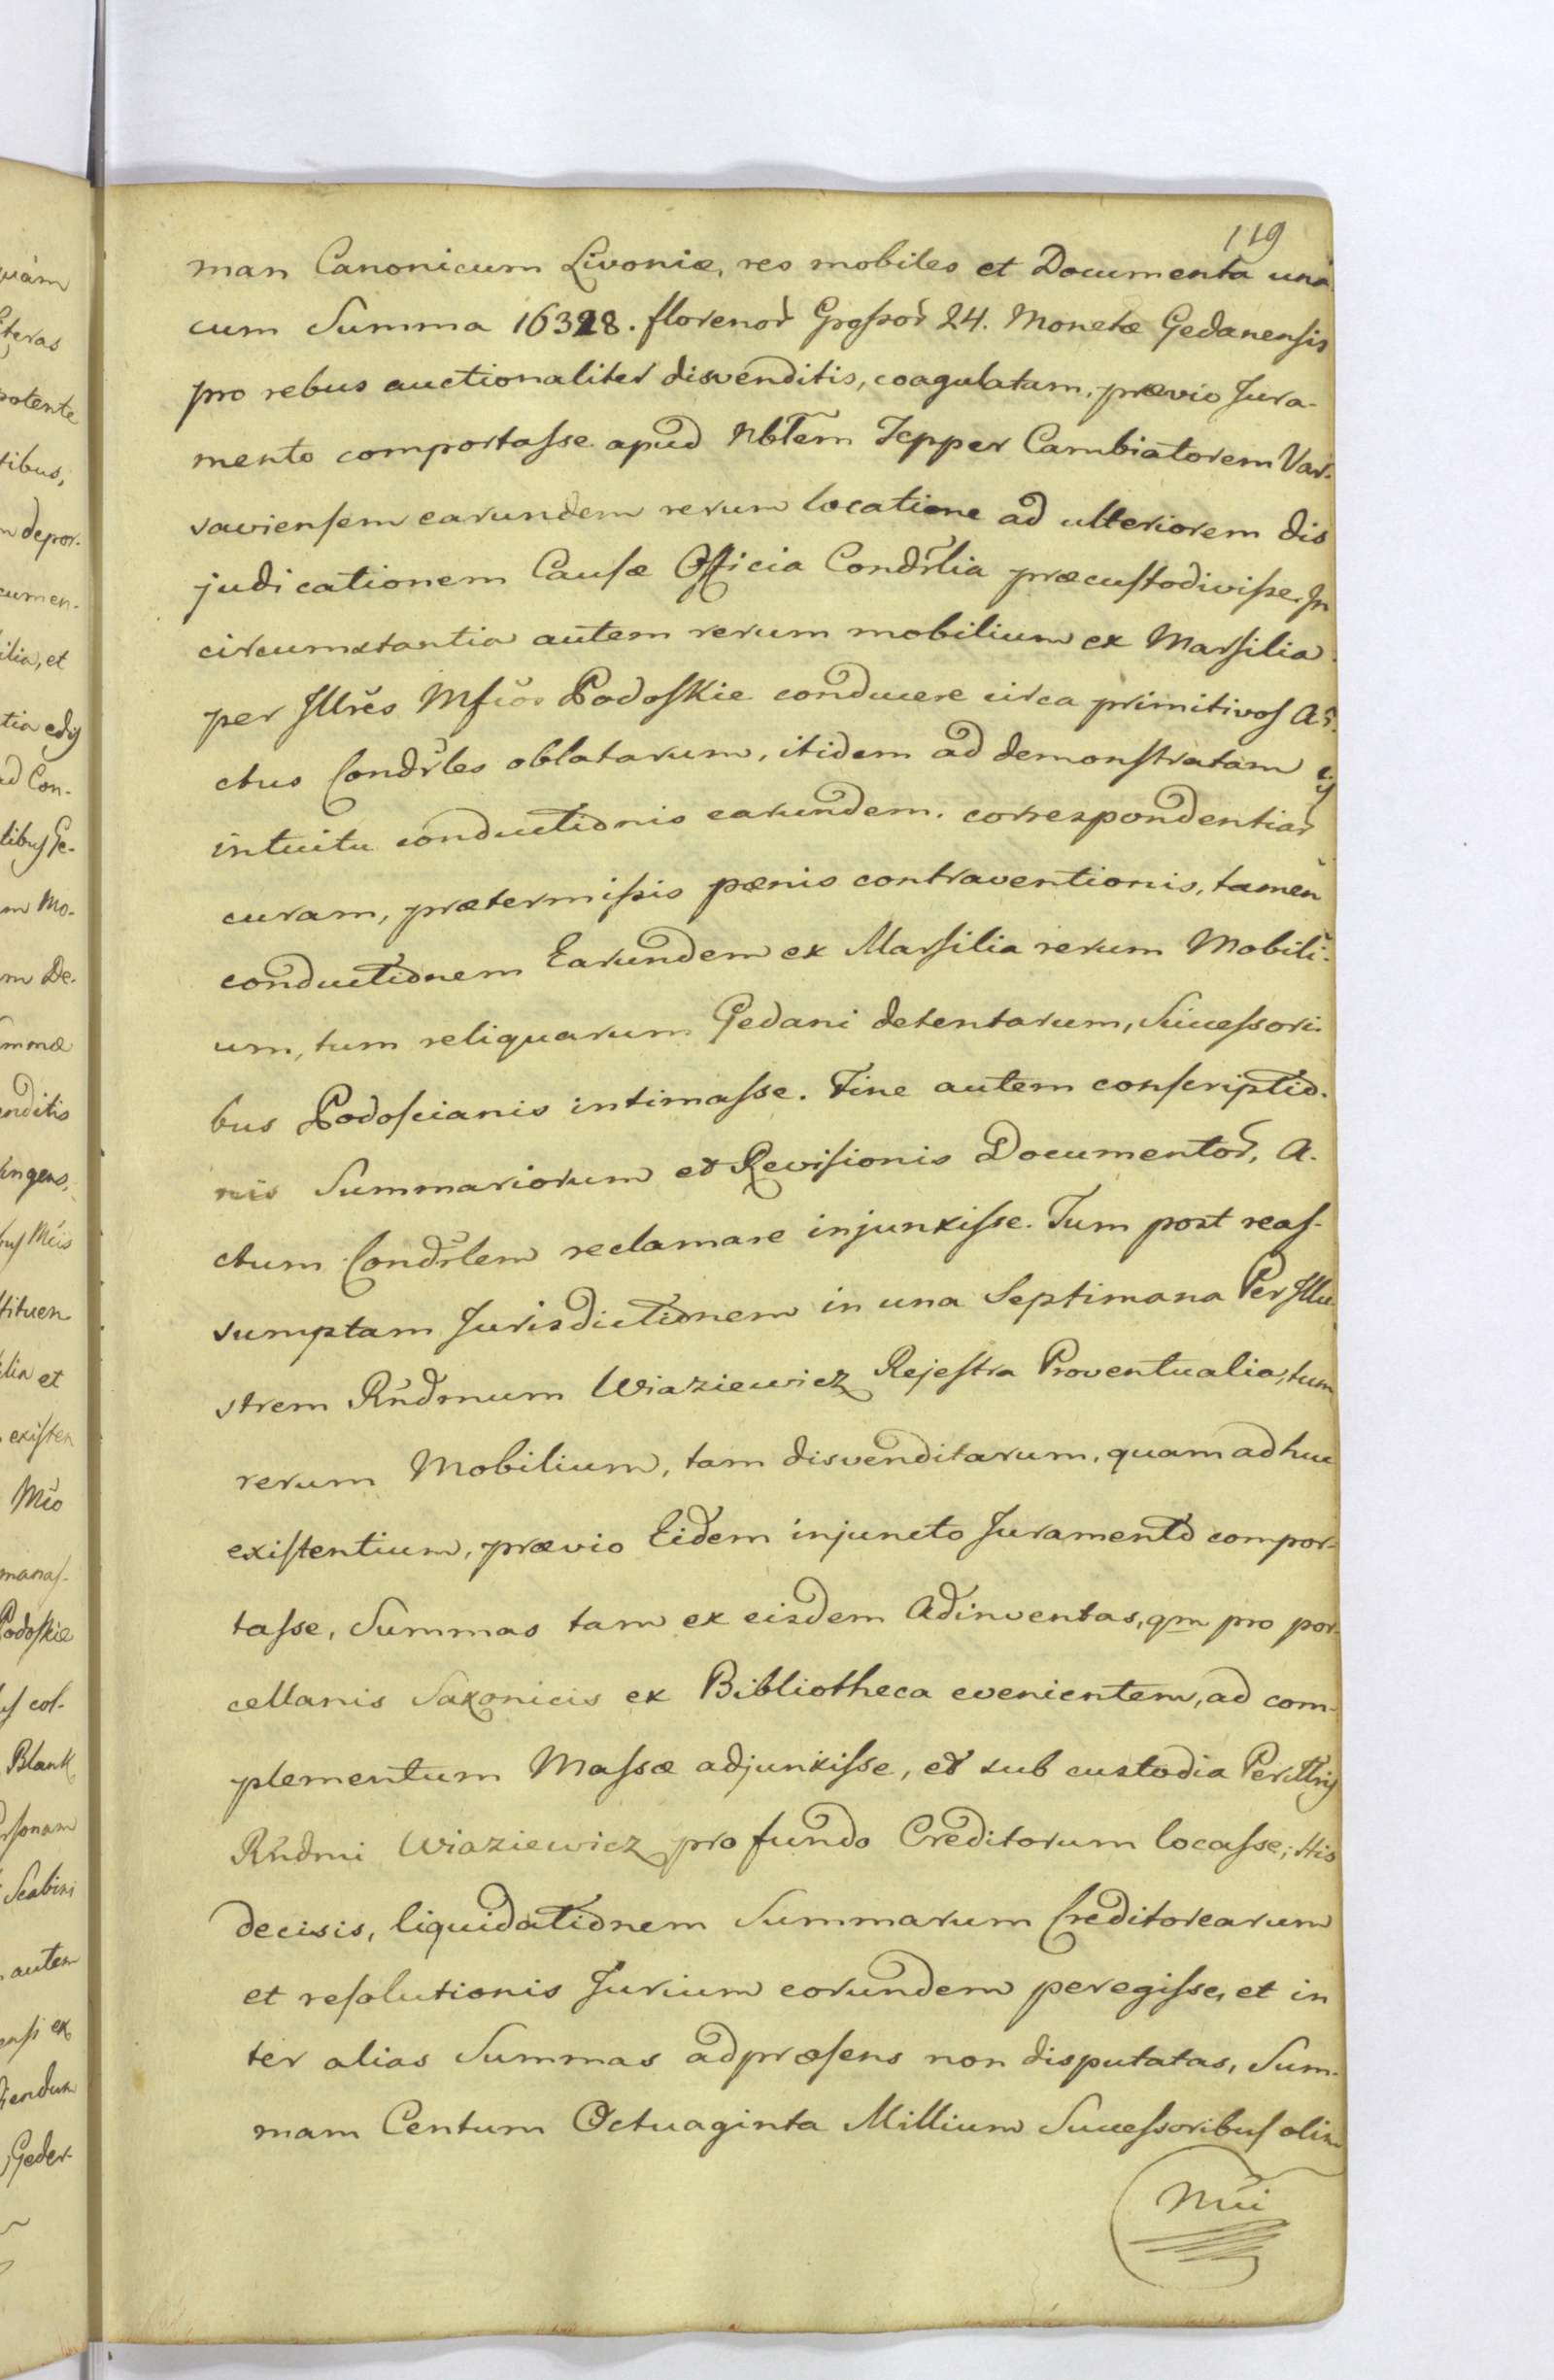 119
man Canonicum Livoniæ, res mobiles et Documenta una
cum Summa 16328. florenor̀ Groſsor̀ 24. Monetæ Gedanenſis
pro rebus auctionaliter disvenditis, coagulatam, prævio Jura-
mento comportaſse apud Nbłem Tepper Cambiatorem Var-
savienſem earundem rerum locatione ad ulteriorem dis
judicationem Cauſæ Officia Condr̃lia præcuſtodiviſse. In
circumstantia autem rerum mobilium ex Marſilia
per Illr̃es Mficos Podoſkie conducere circa primitivoſ A-
ctus Condr̃les oblatarum, itidem ad demonſtratam
intuitu conductionis earundem. correspondentiar̃
curam, prætermiſsis pænis contraventionis, tamen
conductionem Earundem ex Marſilia rerum Mobili-
um, tum reliquarum Gedani detentarum, Succeſsori-
bus Podoſcianis intimaſse. Fine autem conſcriptio-
nis Summariorum et Reviſionis Documentor̃, A-
ctum Condr̃lem reclamare injunxiſse. Tum post reaſ-
sumptam Jurisdictionem in una Septimana Per Illu-
strem Rñdmum Wiaziewicz Rejeſtra Proventualia, tum
rerum Mobilium, tam disvenditarum, quam adhuc
exiſtentium, prævio Eidem injuncto Juramento compor-
taſse, Summas tam ex eisdem Adinventas, qm pro por-
cellanis Saxonicis ex Bibliotheca evenientem, ad com-
plementum Maſsæ adjunxiſse, et sub custodia Perillris
Rñdmi Wiaziewicz pro fundo Creditorum locaſse; His
decisis, liquidationem Summarum Creditorearum
et reſolutionis Jurium eorundem peregiſse, et in
ter alias Summas adpræſens non disputatas, Sum-
mam Centum Octuaginta Millium Succeſsoribuſ olim
Mci